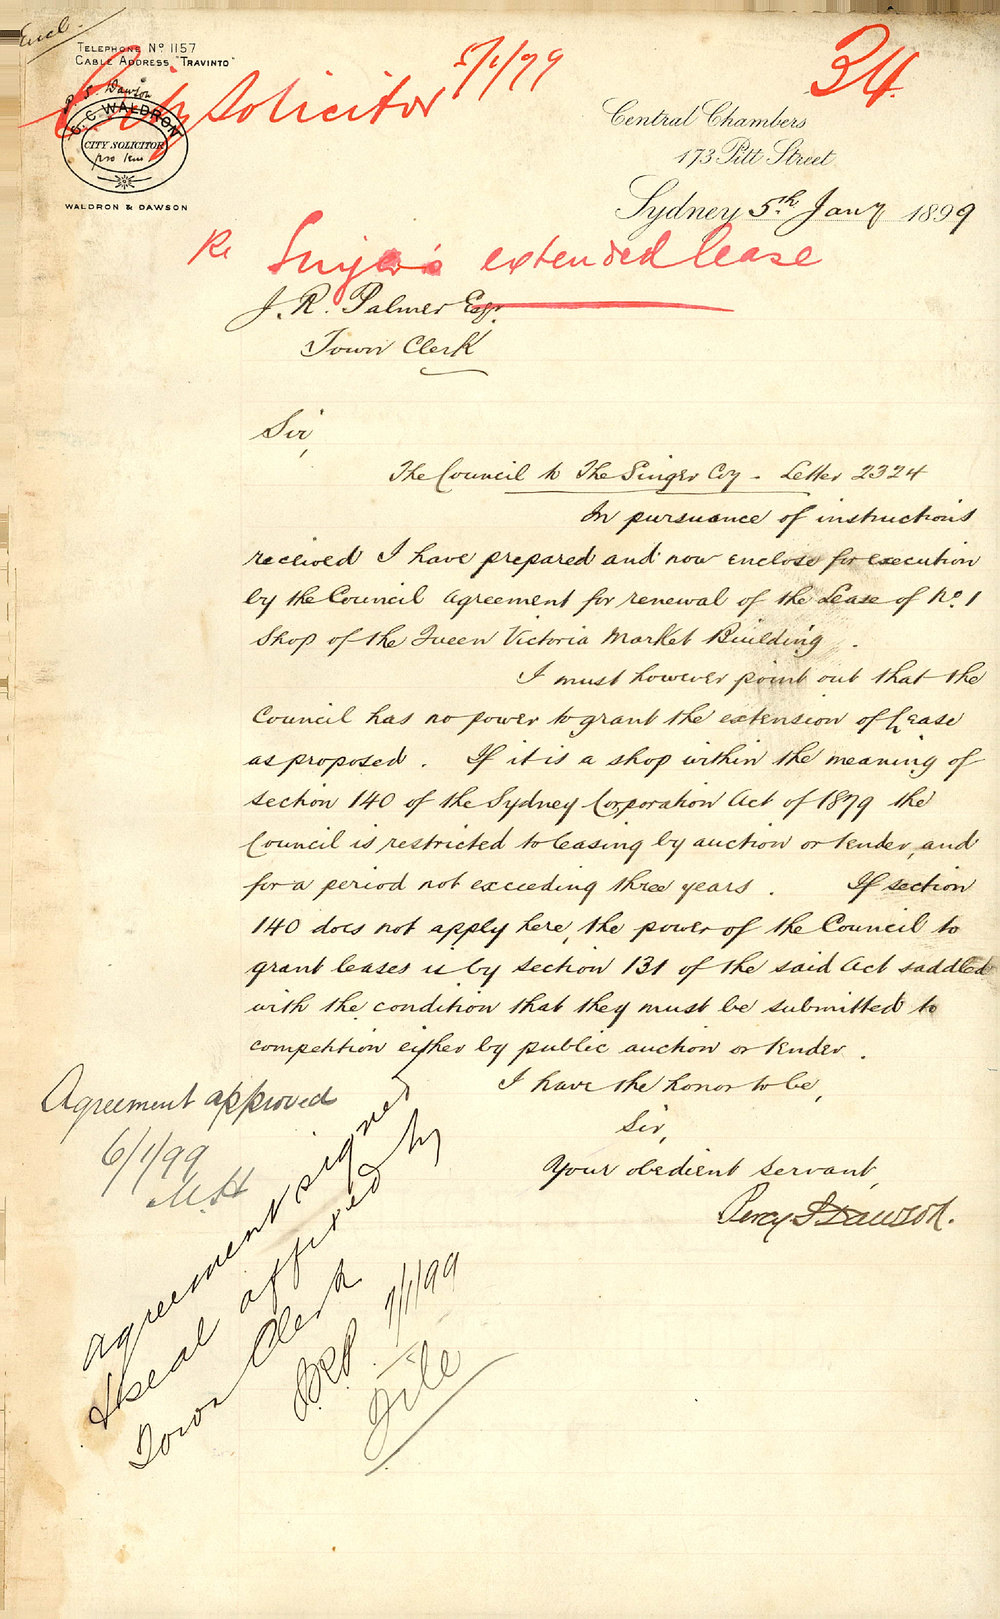 Encl.
TELEPHONE No 1157
CABLE ADDRESS "TRAVINTO"
City Solicitor 5/1/99
34
P. S. Dawson
C. C. WALDRON
CITY SOLICITOR
pro tem
WALDRON & DAWSON
Central Chambers
173 Pitt Street
Sydney 5th Jany 1899
Re Singer's extended lease
J. R. Palmer Esqr.
Town Clerk
Sir,
The Council to The Singer Coy - Letter 2324
In pursuance of instructions
received I have prepared and now enclose for execution
by the Council agreement for renewal of the Lease of No. 1
Shop of the Queen Victoria Market Building.
I must however point out that the
Council has no power to grant the extension of Lease
as proposed. If it is a shop within the meaning of
section 140 of the Sydney Corporation Act of 1879 the
Council is restricted to leasing by auction or tender, and
for a period not exceeding three years. If section
140 does not apply here, the power of the Council to
grant leases is by section 131 of the said Act saddled
with the condition that they must be submitted to
competition either by public auction or tender.
I have the honor to be,
Sir,
Your obedient servant,
Percy S Dawson.
Agreement approved
6/1/99
M.H
Agreement signed
& seal affixed by
Town Clerk
7/1/99
File